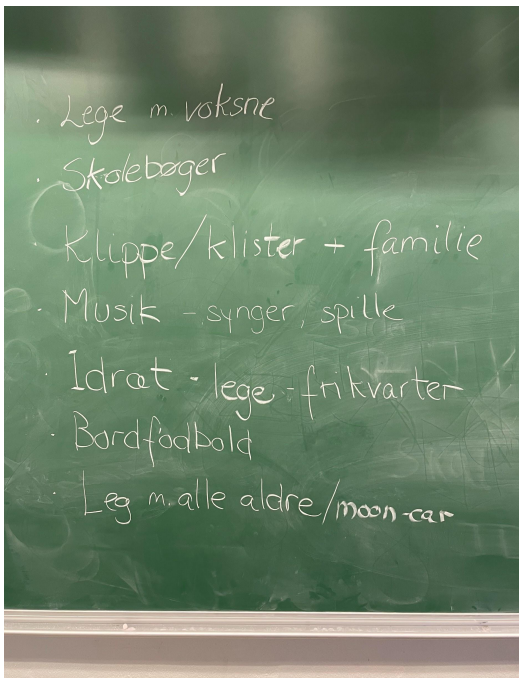 · Lege m. voksne
· Skolebøger
· Klippe/klister + familie
· Musik - synger, spille
· Idræt - lege - frikvarter
· Bordfodbold
· Leg m. alle aldre/moon-car